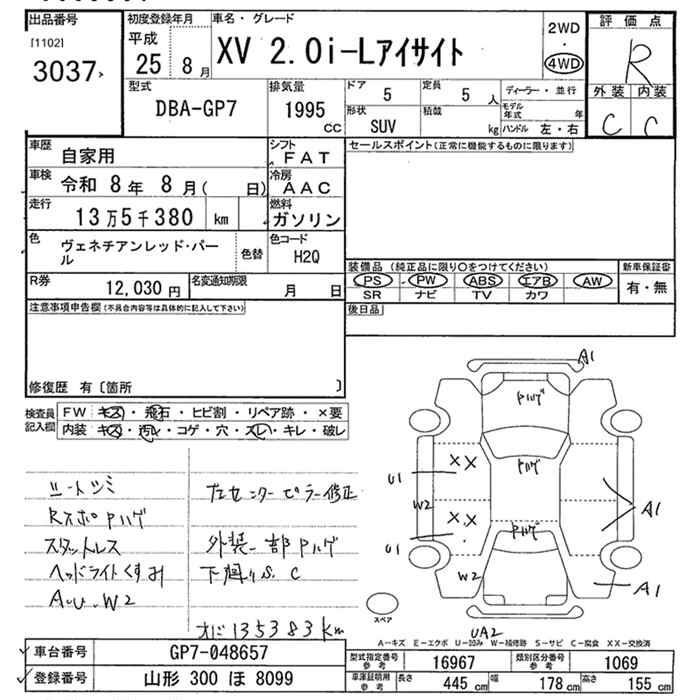 出品番号
[1102]
3037
初度登録年月
平成
25 8月
車名・グレード
XV 2.0i-Lアイサイト
2WD
・
4WD
評価点
R
外装 内装
C C
型式
DBA-GP7
排気量
1995
CC
ドア
5
定員
5 人
形状
SUV
積載
kg
ディーラー・並行
モデル年式 年
ハンドル 左・右
車歴
自家用
シフト
FAT
車検
令和 8年 8月( 日)
冷房
AAC
走行
13万5千380 km
燃料
ガソリン
色
ヴェネチアンレッド・パール
色替
色コード
H2Q
R券
12,030 円
名変通知期限
月 日
セールスポイント(正常に機能するものに限ります)
装備品 (純正品に限り○をつけてください)
PS PW ABS エアB AW
SR ナビ TV カワ
新車保証書
有・無
後日品
注意事項申告欄(不具合内容等は具体的に記入して下さい)
修復歴 有〔箇所 〕
検査員
記入欄
FW キズ・飛石・ヒビ割・リペア跡・×要
内装 キズ・汚れ・コゲ・穴・スレ・キレ・破レ
シートシミ
RスポPハゲ
スタットレス
ヘッドライトくすみ
A.U.W2
左センターピラー修正
外装一部Pハゲ
下廻りS.C
オド135383Km
A1
Pハゲ
××
Pハゲ
U1
W2
A1
××
U1
Pハゲ
W2
A1
UA2
スペア
A-キズ E-エクボ U-凹み W-補修跡 S-サビ C-腐食 XX-交換済
車台番号
GP7-048657
登録番号
山形 300 ほ 8099
型式指定番号
参考
16967
類別区分番号
参考
1069
車庫証明用
参考
長さ 445 cm 幅 178 cm 高さ 155 cm